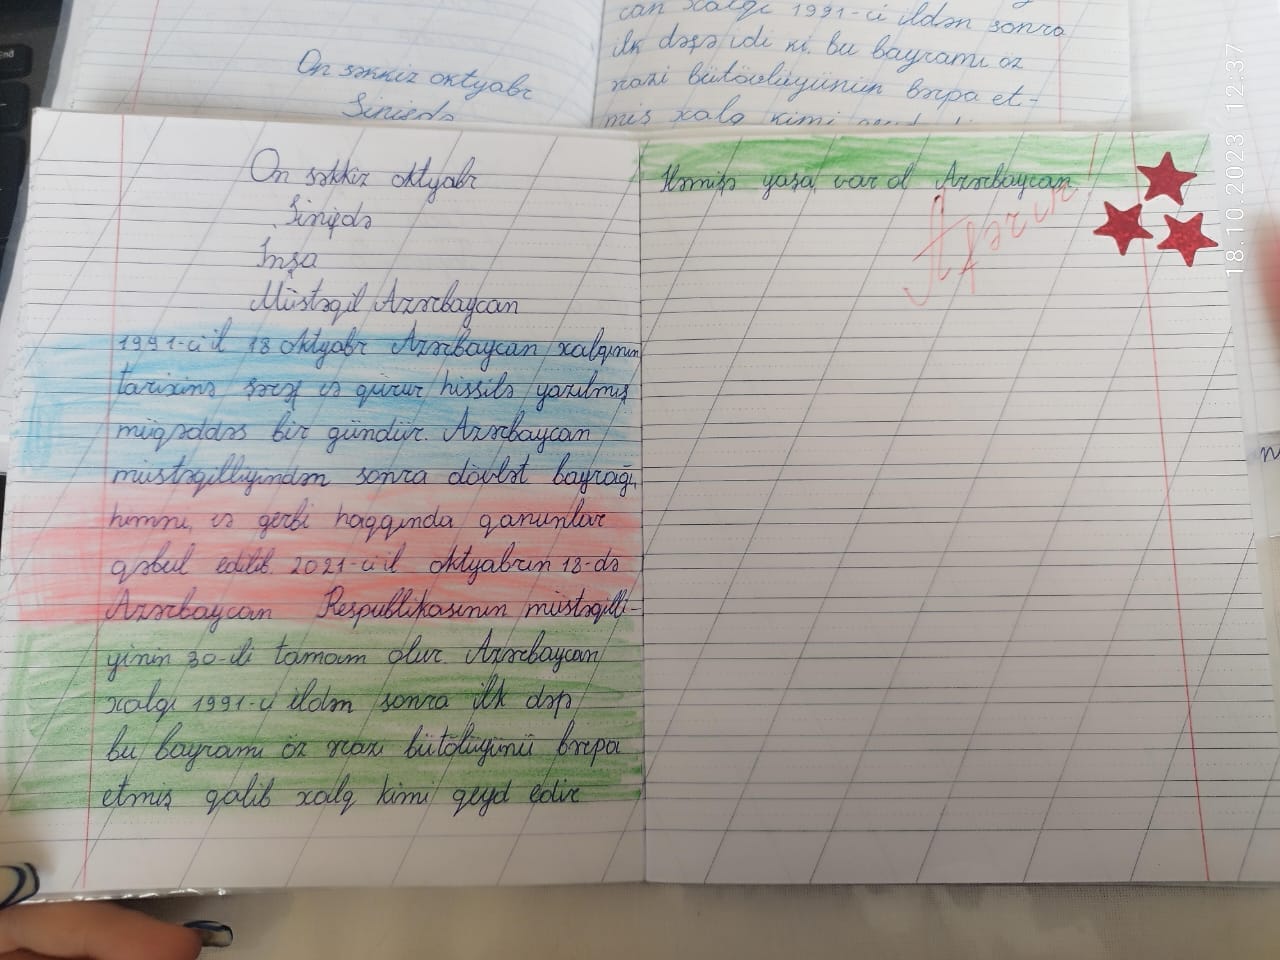 can xalqı 1991-ci ildən sonra
ilk dəfə idi ki, bu bayramı öz
razi bütövlüyünün bərpa et-
miş xalq kimi
On səkkiz oktyabr
Sinifdə
On səkkiz oktyabr
Sinifdə
İnşa
Müstəqil Azərbaycan
1991-ci il 18 oktyabr Azərbaycan xalqının
tarixinə şərəf və qürur hissilə yazılmış
müqəddəs bir gündür. Azərbaycan
müstəqilliyindən sonra dövlət bayrağı,
himni, və gerbi haqqında qanunlar
qəbul edilib. 2021-ci il oktyabrın 18-də
Azərbaycan Respublikasının müstəqilli-
yinin 30-ili tamam olur. Azərbaycan
xalqı 1991-ci ildən sonra ilk dəfə
bu bayramı öz razi bütölüyünü bərpa
etmiş qalib xalq kimi qeyd edir
Həmişə yaşa, var ol Azərbaycan
Afərin!
18.10.2023 12:37
End